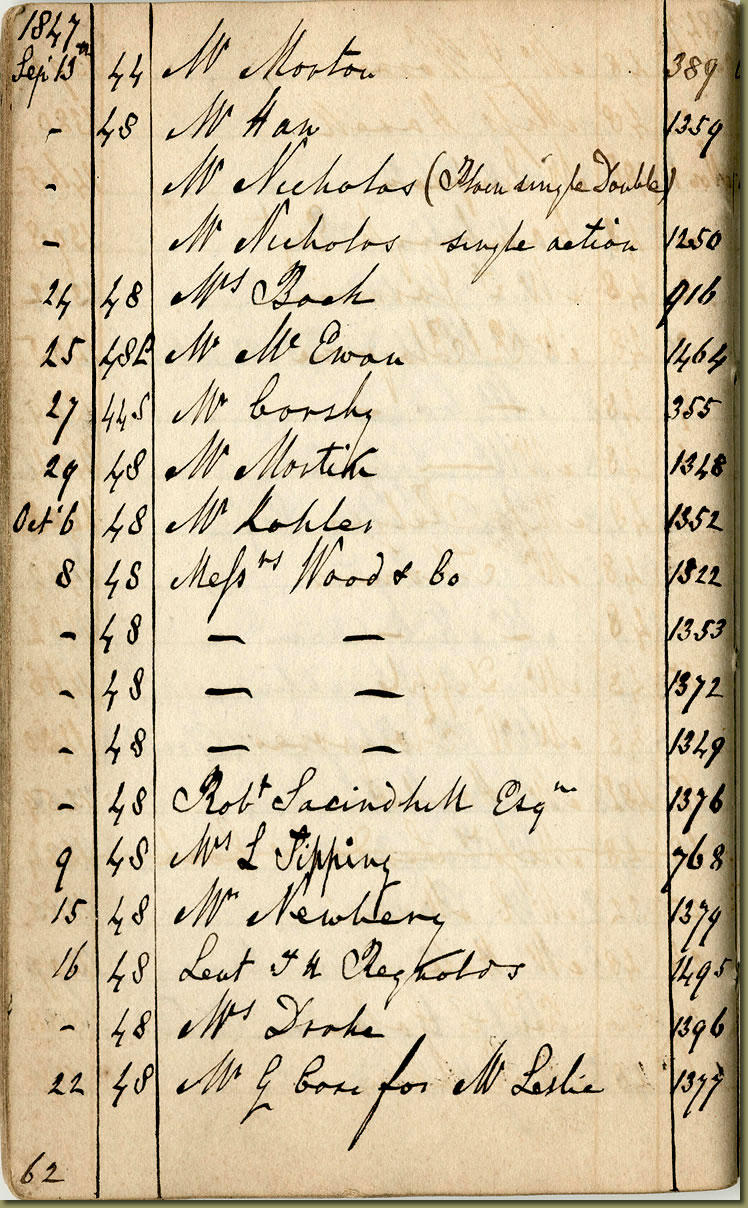 1847
Sep 13th 44 Mr Morton 389
- 48 Mr Han 1359
- Mr Nicholas ( single Double)
- Mr Nicholas single action 1250
24 48 Mrs Back 916
25 48L Mr Mc Ewan 1464
27 44S Mr Corsby 355
29 48 Mr Martin 1348
Oct 6 48 Mr Kohler 1352
8 48 Messrs Wood & Co 1322
- 48 — — 1353
- 48 — — 1372
- 48 — — 1349
- 48 Robt Esqre 1376
9 48 Mrs L Tipping 768
15 48 Mr Newbery 1379
16 48 Leut F H Reynolds 1495
- 48 Mrs Drake 1396
22 48 Mr G Case for Mr Leslie 1377
62